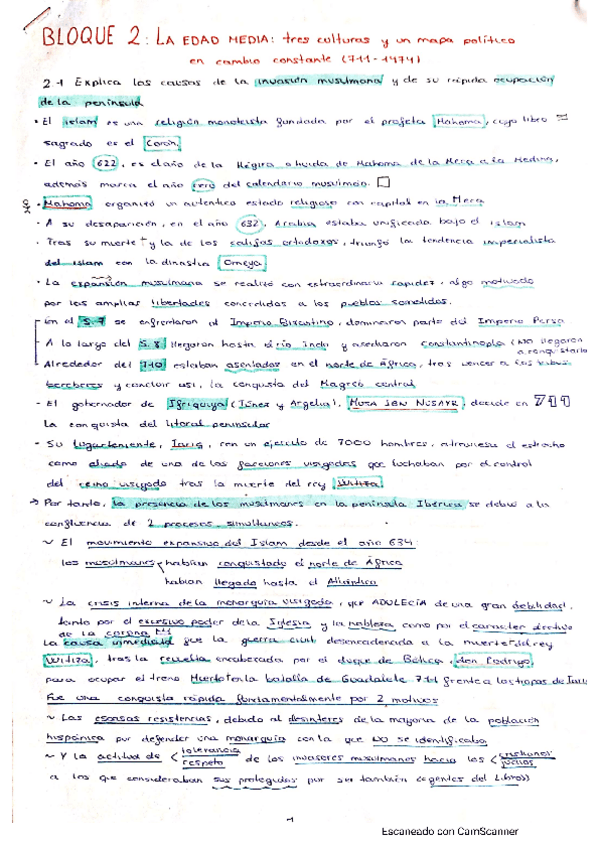 BLOQUE 2: LA EDAD MEDIA: tres culturas y un mapa político
en cambio constante (711-1474)
2.1 Explica las causas de la invasión musulmana y de su rápida ocupación
de la península
· El islam es una religión monoteísta fundada por el profeta Mahoma, cuyo libro
sagrado es el Corán.
· El año 622, es el año de la Hégira o huida de Mahoma de la Meca a la Medina,
además marca el año cero del calendario musulmán.
· Mahoma organizó un auténtico estado religioso con capital en la Meca
· A su desaparición, en el año 632, Arabia estaba unificada bajo el islam
· Tras su muerte y la de los califas ortodoxos, triunfó la tendencia imperialista
del islam con la dinastía Omeya
· La expansión musulmana se realizó con extraordinaria rapidez, algo motivado
por las amplias libertades concedidas a los pueblos sometidos.
En el S.7 se enfrentaron al Imperio Bizantino, dominaron parte del Imperio Persa
A lo largo del S.8 llegaron hasta el río Indo y asediaron Constantinopla (NO llegaron
a conquistarla
Alrededor del 710 estaban asentados en el norte de África, tras vencer a las tribus
bereberes y concluir así, la conquista del Magreb central
· El gobernador de Ifriquiya (Túnez y Argelia), MUZA IBN NUSAYR, decide en 711
la conquista del litoral peninsular
· Su lugarteniente, Tariq, con un ejército de 7000 hombres, atraviesa el estrecho
como aliado de una de las facciones visigodas que luchaban por el control
del reino visigodo tras la muerte del rey Witiza.
→ Por tanto, la presencia de los musulmanes en la península Ibérica se debió a la
confluencia de 2 procesos simultáneos.
~ El movimiento expansivo del Islam desde el año 634:
los musulmanes habían conquistado el norte de África
habían llegado hasta el Atlántico
~ La crisis interna de la monarquía visigoda, que ADOLECÍA de una gran debilidad,
tanto por el excesivo poder de la Iglesia y la nobleza como por el carácter electivo
de la corona
La causa inmediata fue la guerra civil desencadenada a la muerte del rey
Witiza, tras la revuelta encabezada por el duque de Bética, don Rodrigo,
para ocupar el trono. Muerto en la batalla de Guadalete 711 frente a las tropas de
Fue una conquista rápida fundamentalmente por 2 motivos
~ Las escasas resistencias, debido al desinterés de la mayoría de la población
hispánica por defender una monarquía con la que NO se identificaba
~ Y la actitud de < tolerancia respeto de los invasores musulmanes hacia los < cristianos judíos
a los que consideraban sus protegidos por ser también (gentes del Libro)
1
Escaneado con CamScanner